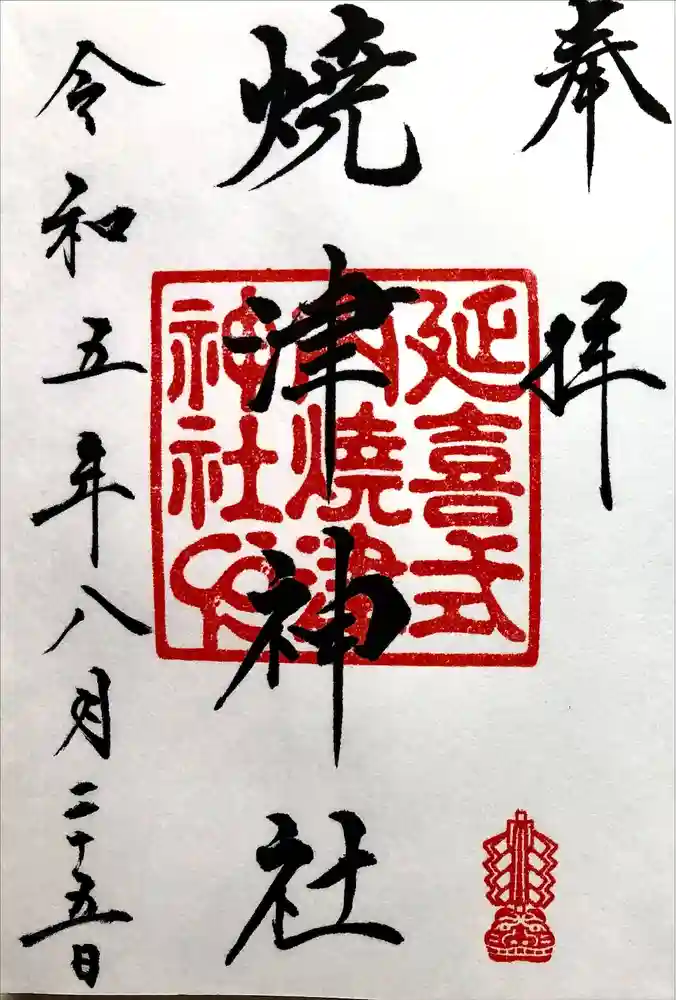 奉拝
焼津神社
延喜式
内焼津
神社印
令和五年八月二十五日